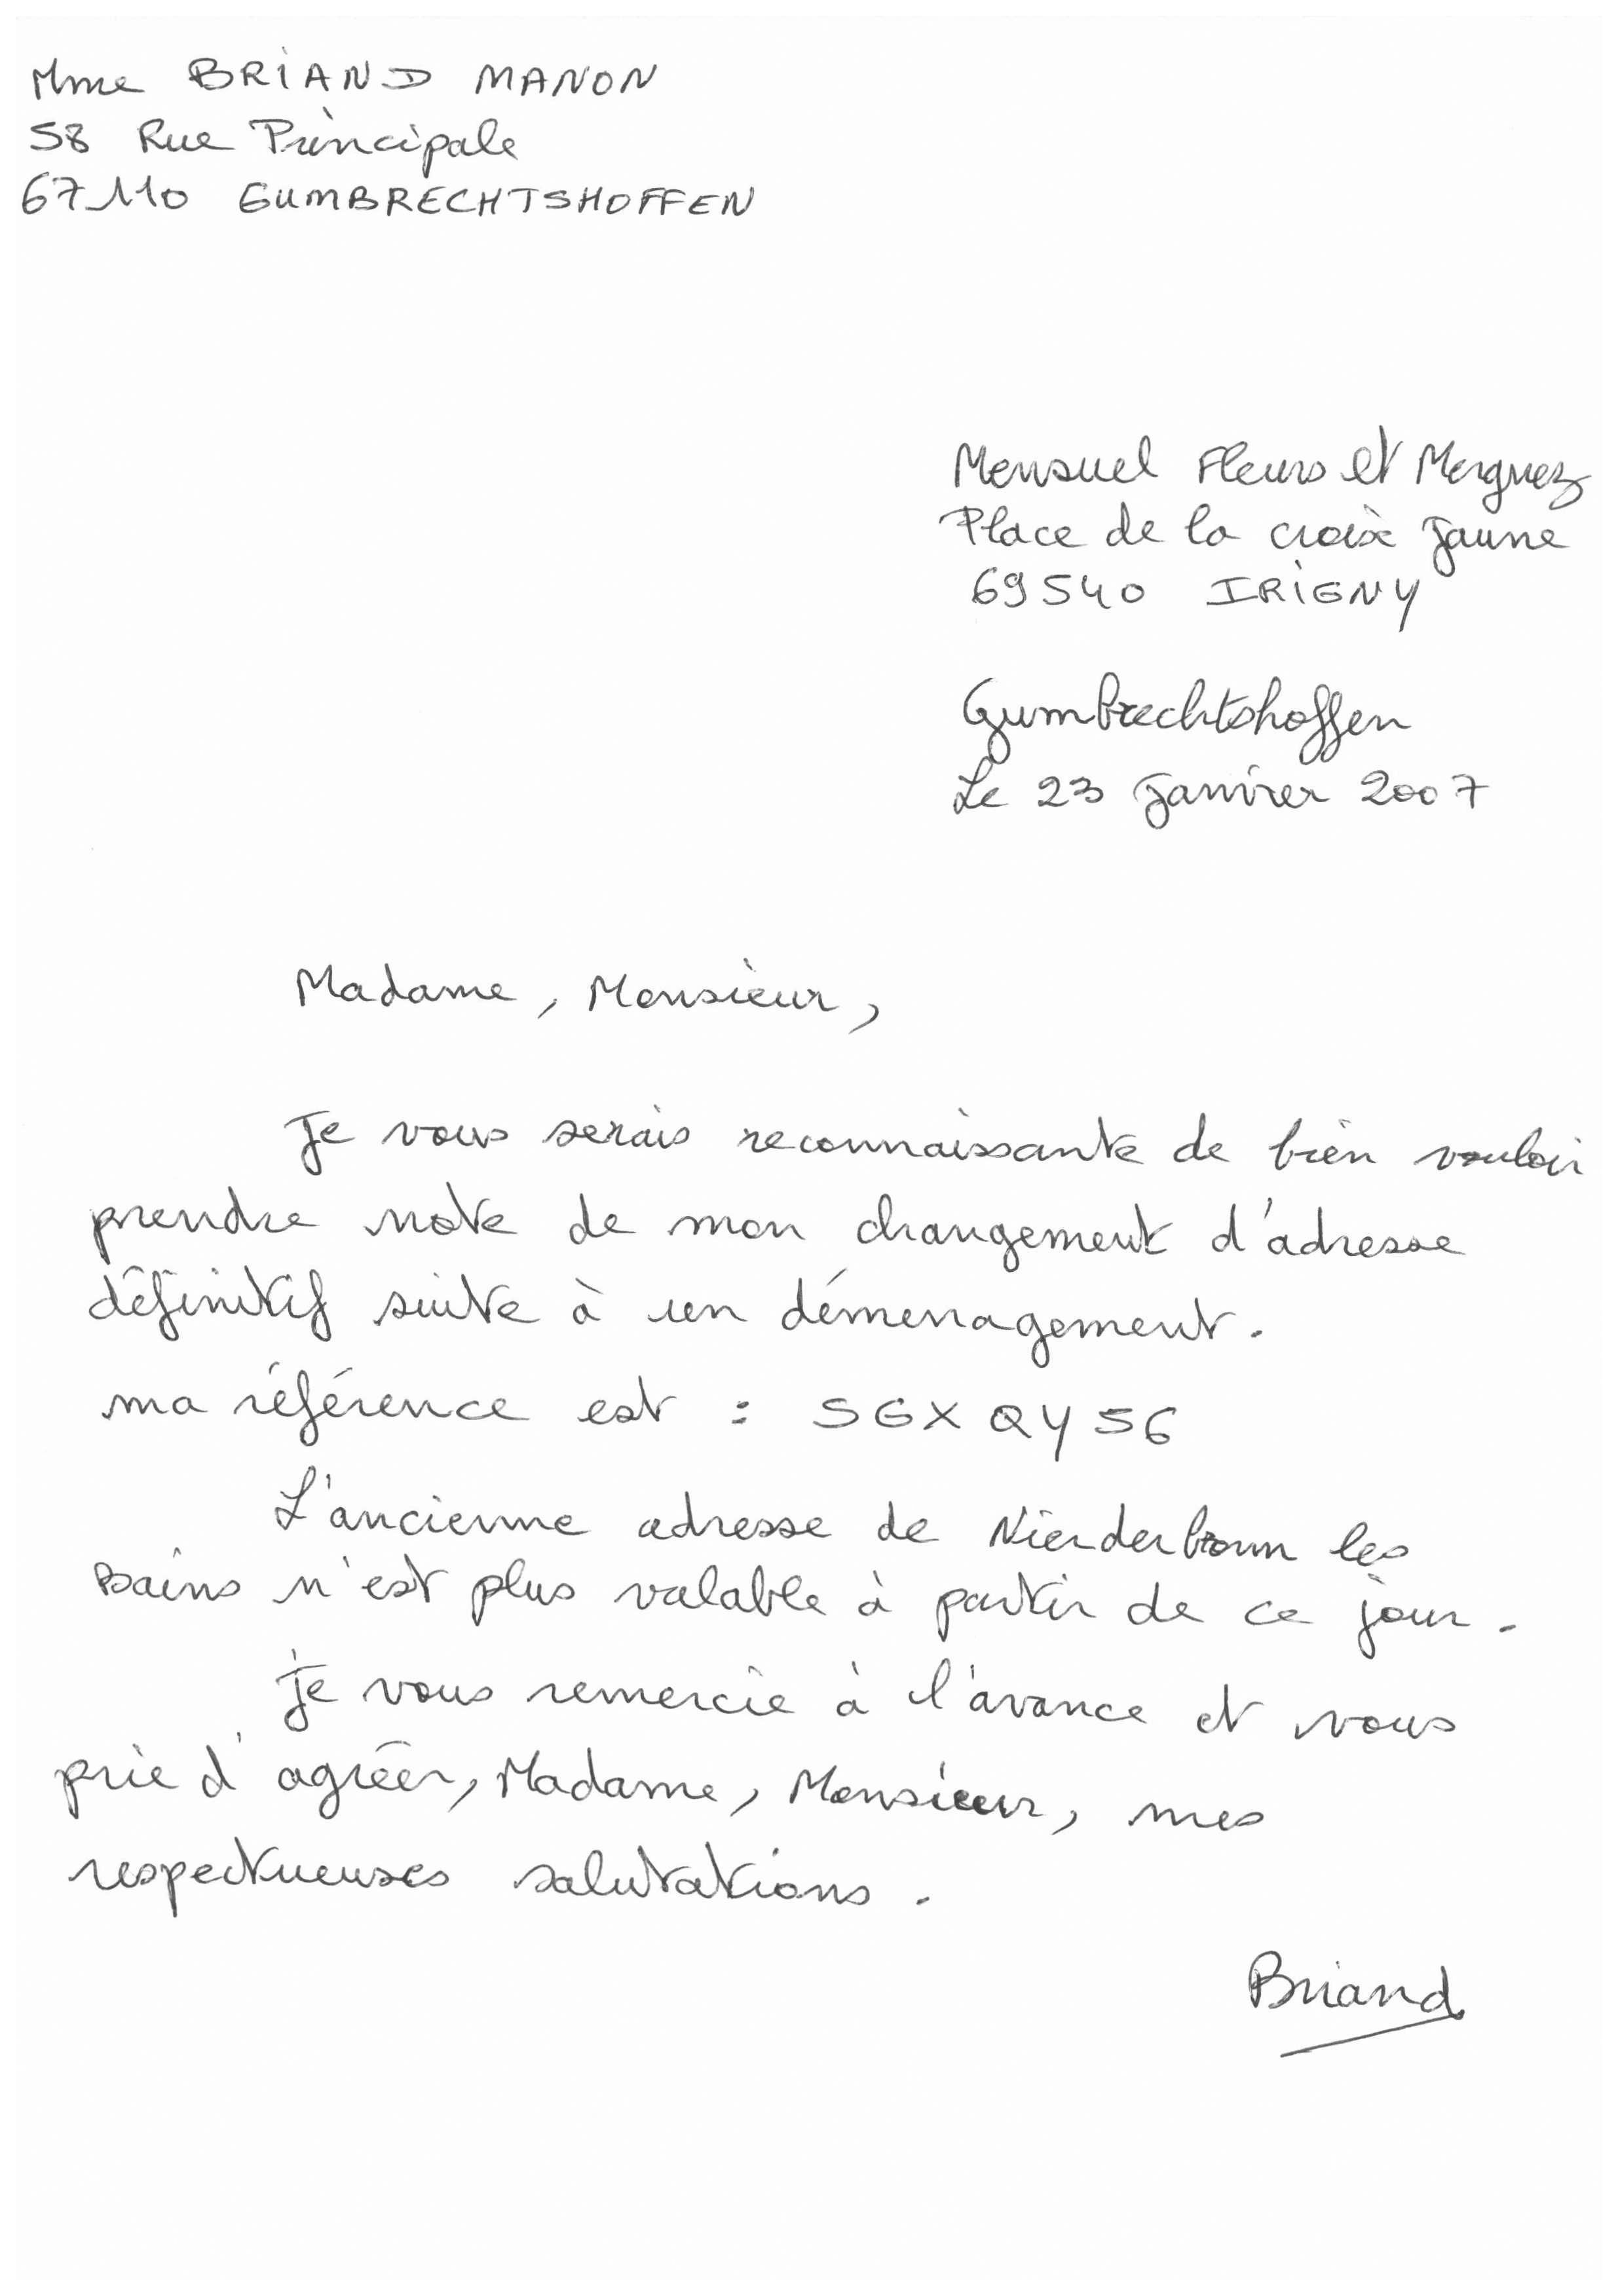 Mme BRIAND MANON
58 Rue Principale
67110 GUMBRECHTSHOFFEN
Mensuel Fleurs et Merguez
Place de la croix Jaune
69540 IRIGNY
Gumbrechtshoffen
Le 23 Janvier 2007
Madame, Monsieur,
Je vous serais reconnaissante de bien vouloir
prendre note de mon changement d'adresse
définitif suite à un déménagement.
ma référence est : SGXQY56
L'ancienne adresse de Nierderbronn les
Bains n'est plus valable à partir de ce jour.
Je vous remercie à l'avance et vous
prie d'agréer, Madame, Monsieur, mes
respectueuses salutations.
Briand